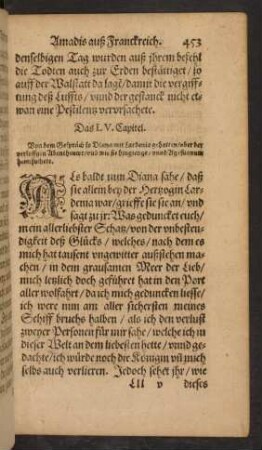 Amadis auß Franckreich. 453
denselbigen Tag wurden auß jhrem befehl
die Todten auch zur Erden bestättiget / so
auff der Walstatt da lagē / damit die vergiff-
tung deß Luffts / vnnd der gestanck nicht et-
wan eine Pestilentz vervrsachete.
Das LV. Capitel.
Von dem Gespräch so Diana mit Lardenia
hetten / vber der
Abenthewr / vnd wie sie hinzoge / vnnd
ALs baldt nun Diana sahe / daß
sie allein bey der Hertzogin Lar-
denia war / grieffe sie sie an / vnd
sagt zu jr: Was geduncket euch /
mein allerliebster Schatz / von der vnbesten-
digkeit deß Glücks / welches / nach dem es
mich hat tausent vngewitter außstehen ma-
chen / in dem grausamen Meer der Lieb /
mich lenlich doch geführet hat in den Port
aller wolfahrt / da ich mich geduncken liesse /
ich were nun am aller sichersten meines
Schiffbruchs halben / als ich den verlust
zweyer Personen für mir sahe / welche ich in
dieser Welt an dem liebesten hette / vnnd ge-
dachte / ich würde noch die Königin vñ mich
selbs auch verlieren. Jedoch sehet jhr / wie
Lll v dieses